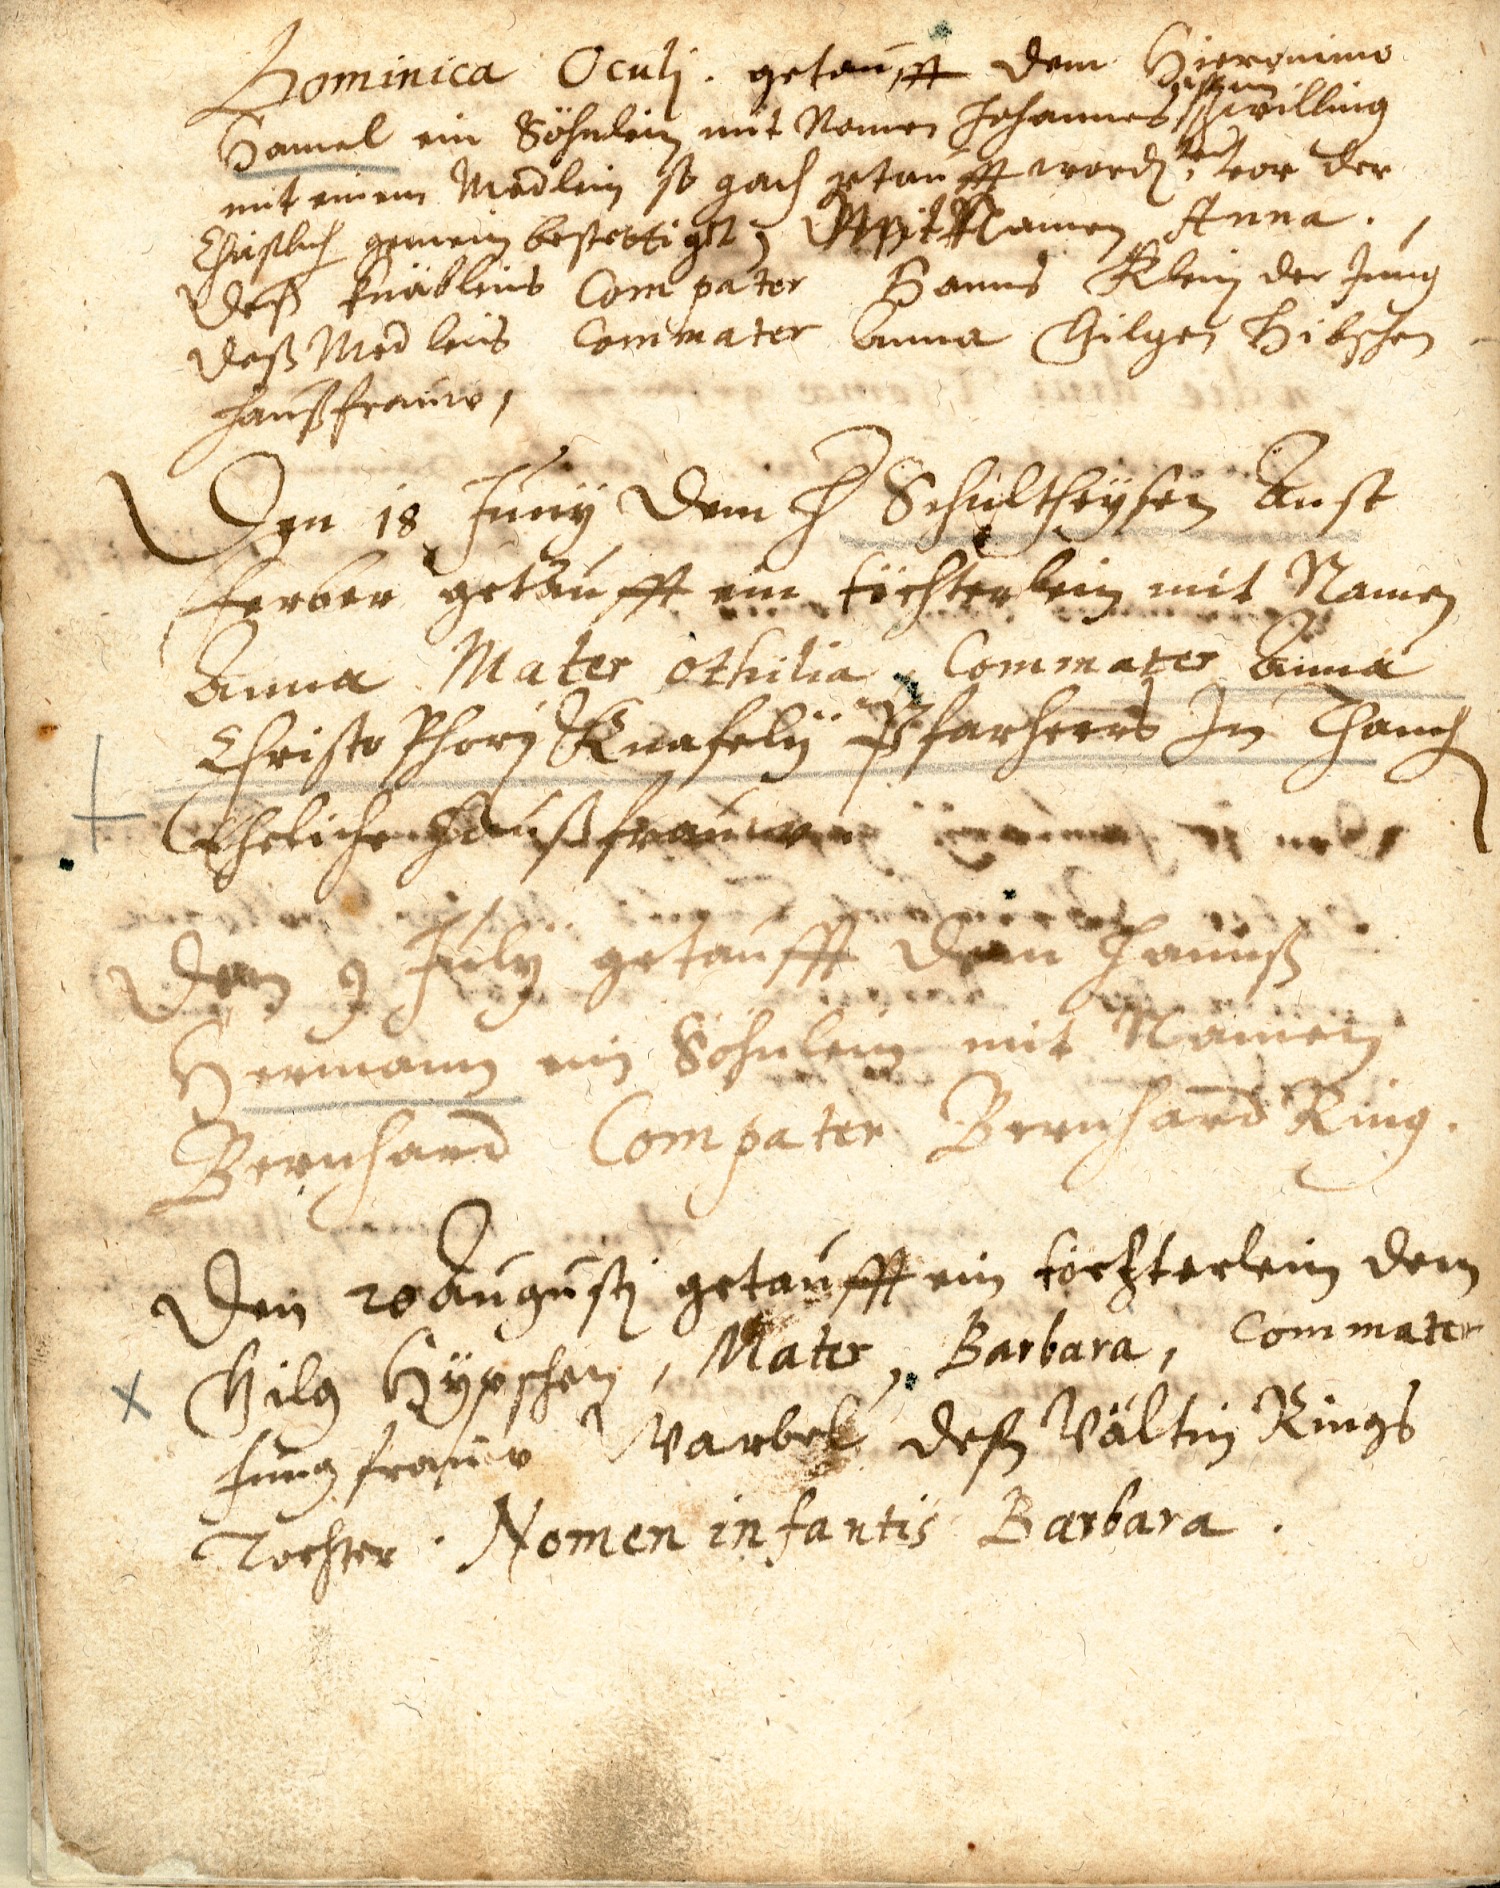 Dominica Oculj. getaufft dem Hieronimo
Hamel ein Söhnlein mit Namen Johannes zwilling
mit einem Medlein so gach getaufft word, vor der
Christlich gemein bestettiget, Mit Namen Anna.
Deß knäbleins Compater Hanns Klein der Jung
deß Medleins Commater Anna Gilgen Hibschen
haußfrauw,
Den 18 Junij dem H Schultheysen Anst
ferber getaufft ein töchterlein mit Namen
Anna Mater Othilia, Commater Anna
Christophorj Knafelij Pfarherrs In Thann
Eheliche haußfrauw
Den 9 Julij getaufft dem Hannß
Hermann ein Söhnlein mit Namen
Bernhard Compater Bernhard Ring.
Den 20 Augustj getaufft ein töchterlein dem
Gilg Hypschen, Mater, Barbara, Commater
Jungfrauw Warbel deß Vältin Rings
Tochter. Nomen infantis Barbara.